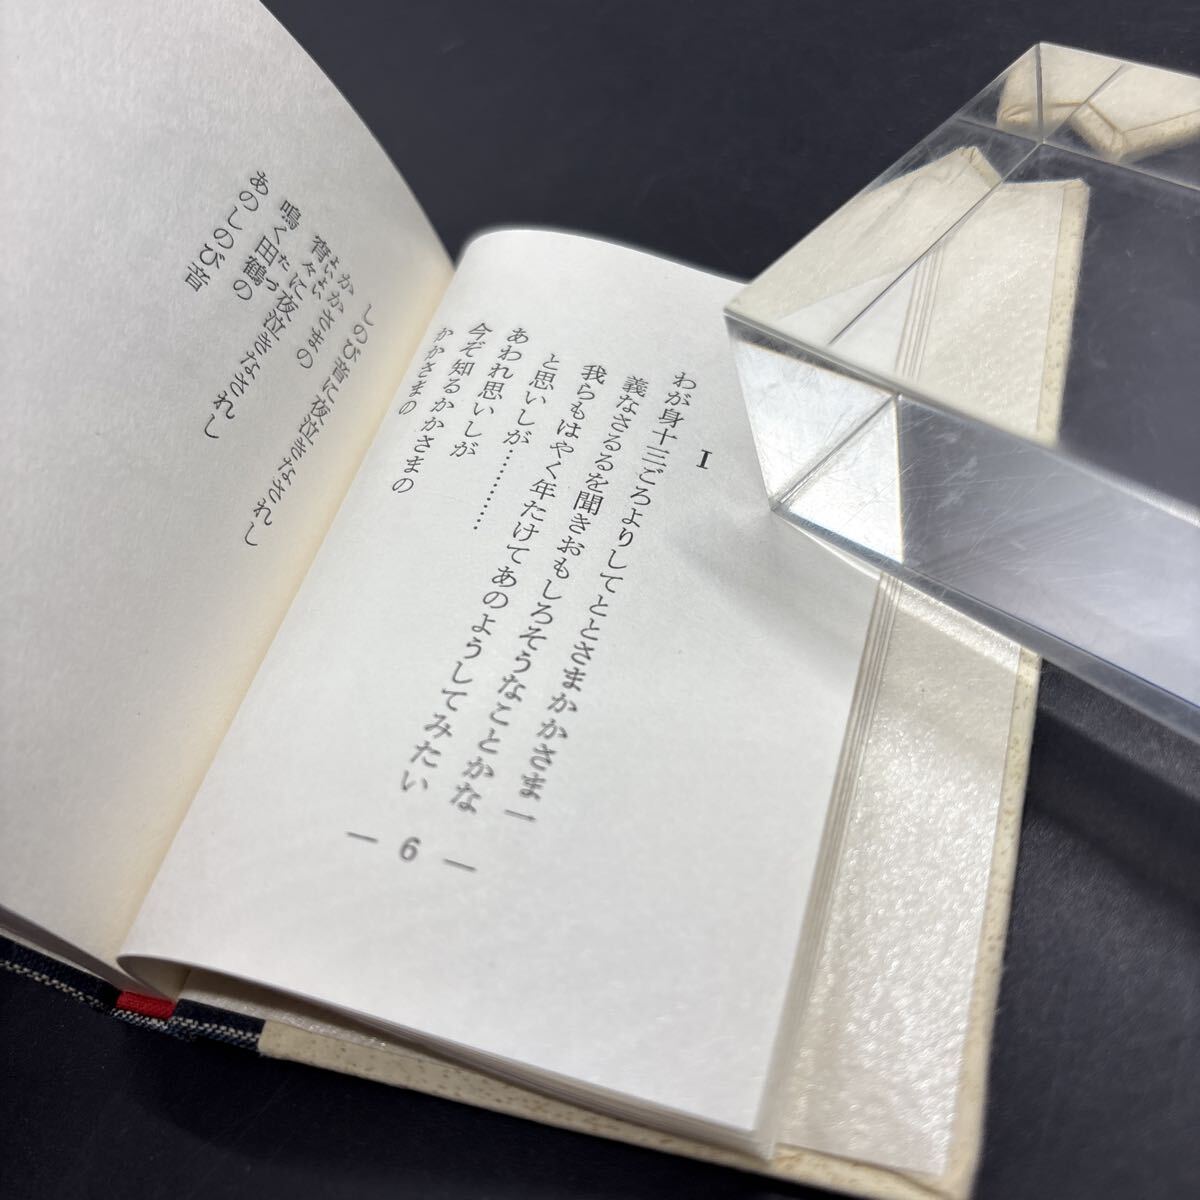 I
わが身十三ごろよりしてととさまかかさま一
義なさるるを聞きおもしろそうなことかな
我らもはやく年たけてあのようしてみたい
と思いしが…………
あわれ思いしが
今ぞ知るかかさまの
かかさまの
— 6 —
しのび音に夜泣きなされし
かかさまの
宵々に夜泣きなされし
よいよい
鳴く田鶴の
たづ
あのしのび音